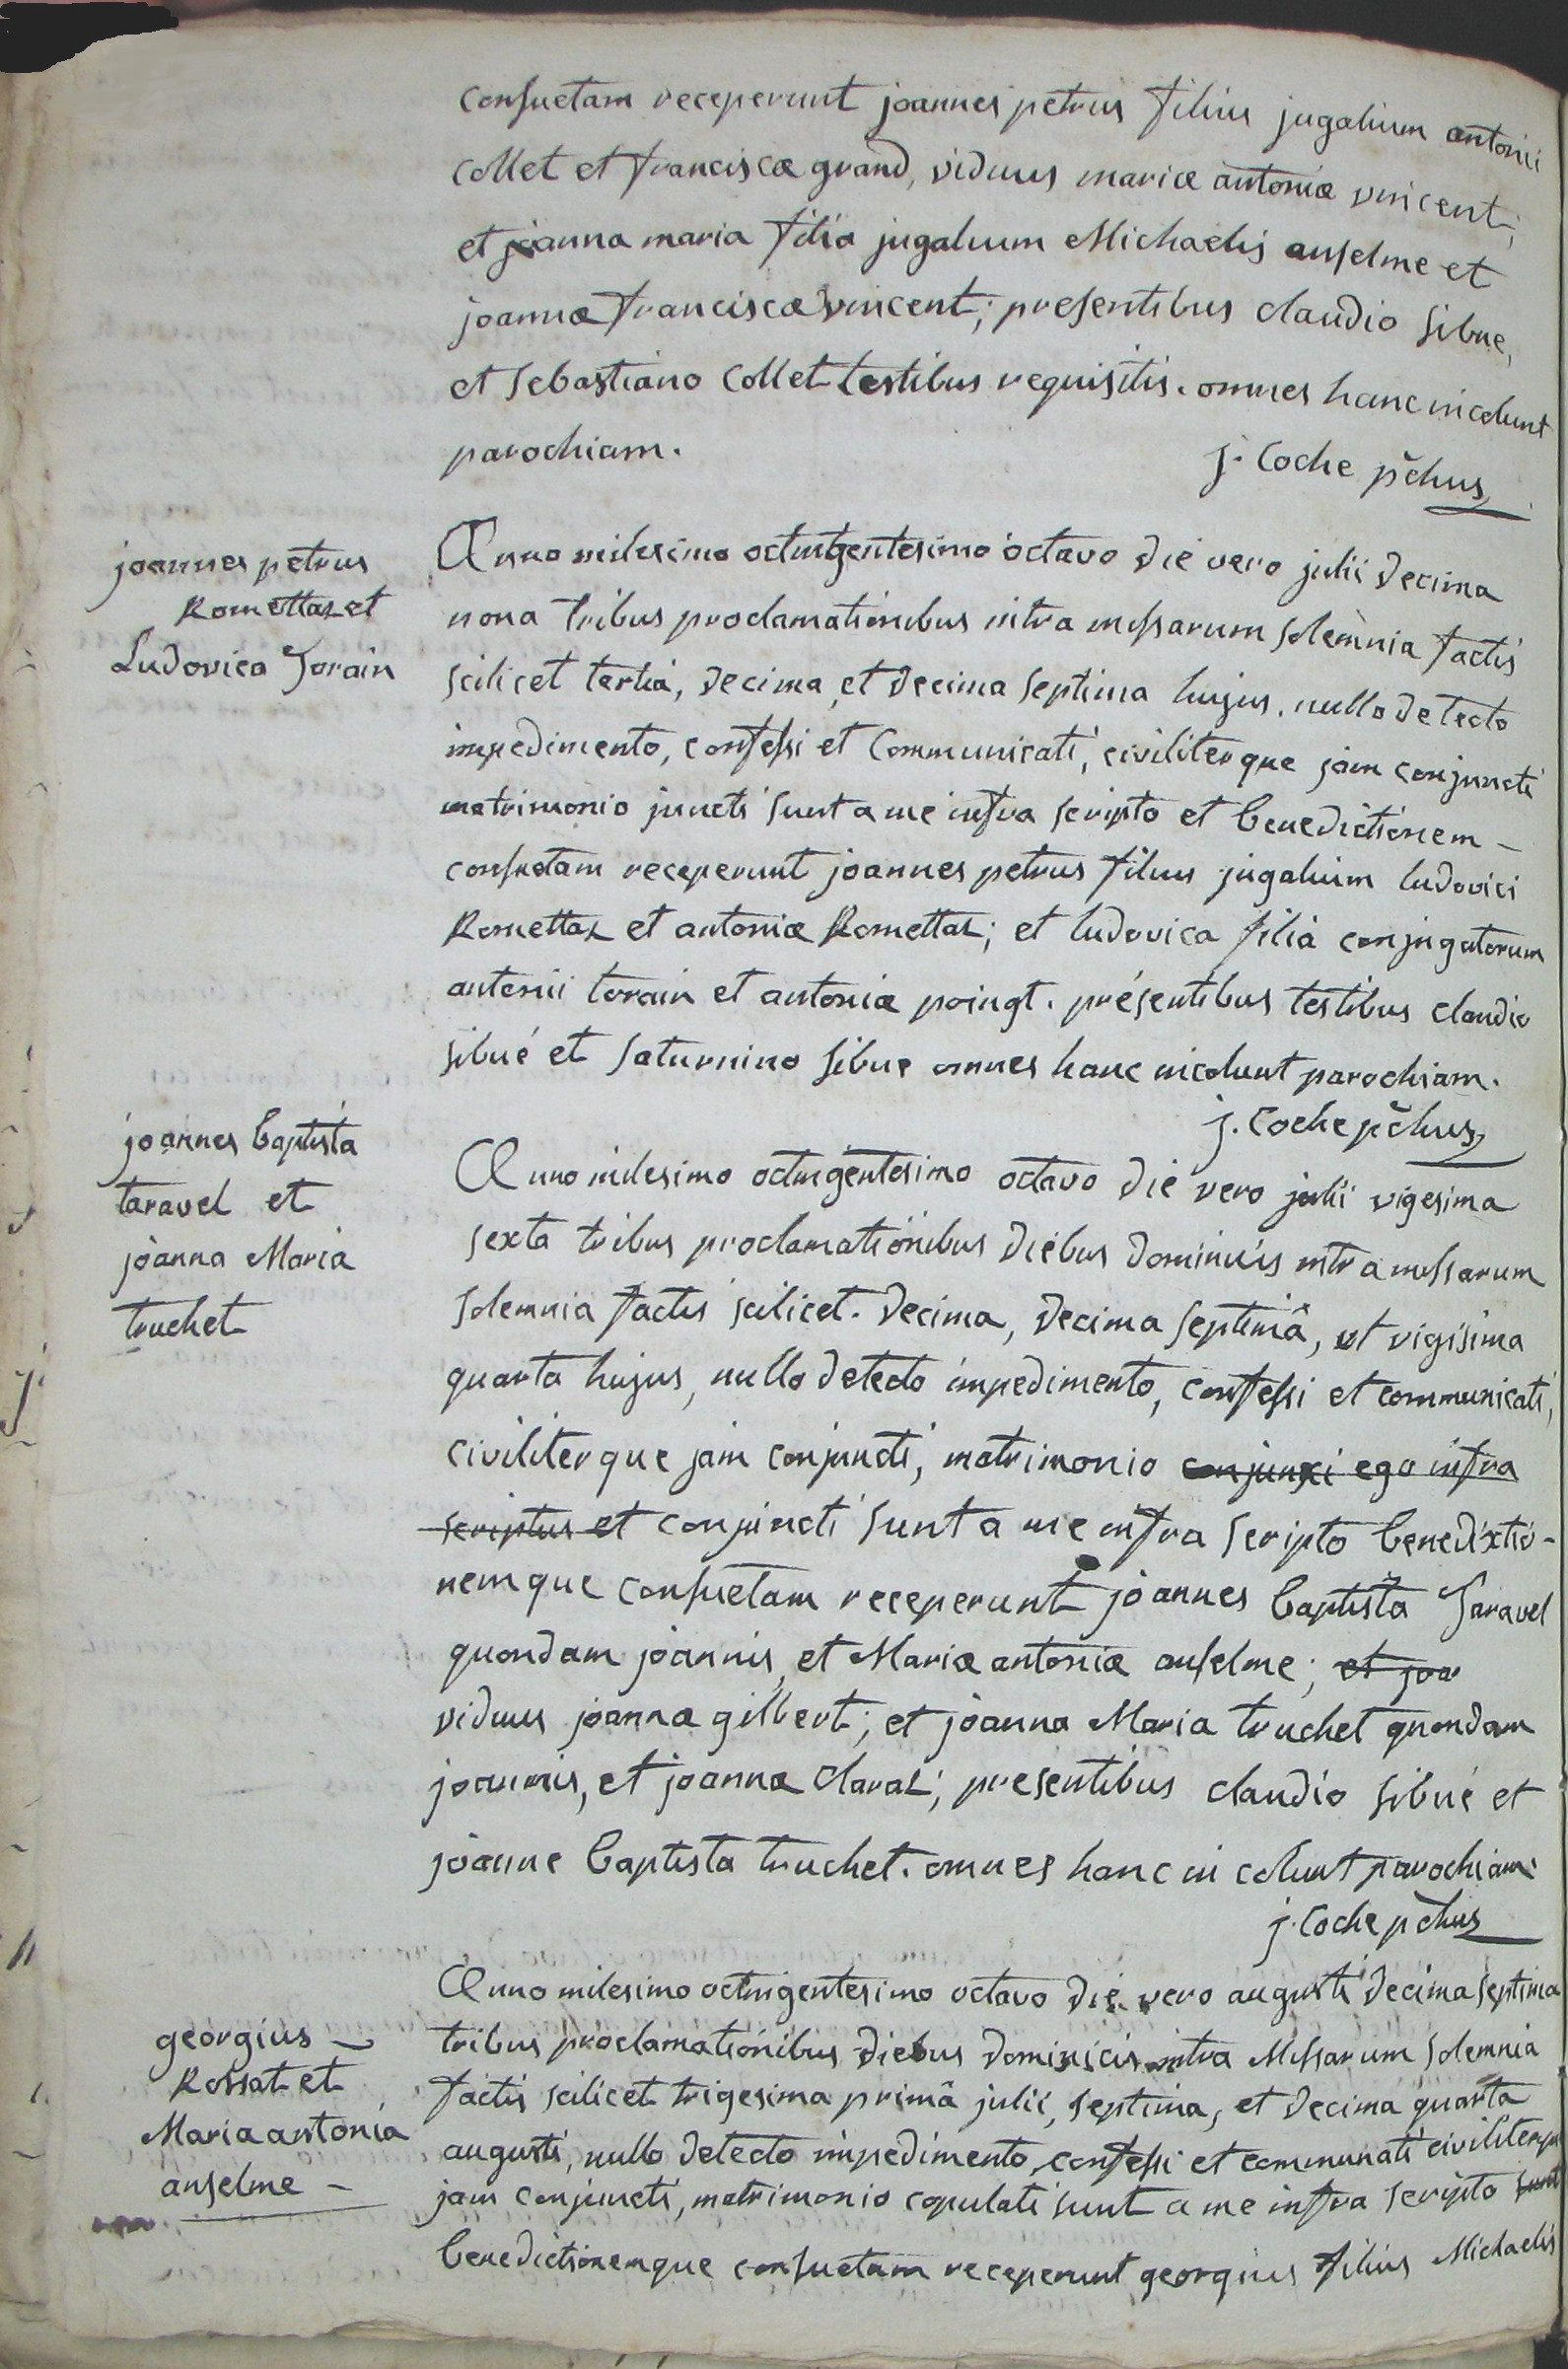 consuetam receperunt joannes petrus filius jugalium antonii
collet et franciscæ grand, viduus mariæ antoniæ vincent;
et joanna maria filia jugalium Michaelis anselme et
joannæ franciscæ vincent; presentibus claudio sibue,
et sebastiano collet testibus requisitis. omnes hanc incolunt
parochiam.
j. Coche pchus
joannes petrus
Romettaz et
Ludovica Torain
Anno milesimo octingentesimo octavo die vero julii decima
nona tribus proclamationibus intra missarum solemnia factis
scilicet tertia, decima, et decima septima hujus, nullo detecto
impedimento, confessi et communicati, civiliterque jam conjuncti
matrimonio juncti sunt a me infra scripto et benedictionem -
consuetam receperunt joannes petrus filius jugalium ludovici
Romettaz et antoniæ Romettaz; et ludovica filia conjugatorum
antonii torain et antoniæ poingt. présentibus testibus claudio
sibué et saturnino sibue omnes hanc incolunt parochiam.
j. Coche pchus
joannes baptista
taravel et
joanna Maria
truchet
Anno milesimo octingentesimo octavo die vero julii vigesima
sexta tribus proclamationibus diebus dominicis intra missarum
solemnia factis scilicet. decima, decima septimâ, et vigisima
quarta hujus, nullo detecto impedimento, confessi et communicati,
civiliterque jam conjuncti, matrimonio conjunxi ego infra
scriptus et conjuncti sunt a me infra scripto benedixtio-
nemque consuetam receperunt joannes baptista Taravel
quondam joannis, et Mariæ antoniæ anselme; et joa
viduus joannæ gilbert; et joanna Maria truchet quondam
joannis, et joannæ claraz; presentibus claudio sibué et
joanne baptista truchet. omnes hanc in colunt parochiam.
j. Coche pchus
georgius -
Rossat et
Maria antonia
anselme -
Anno milesimo octingentesimo octavo die vero augusti decima septima
tribus proclamationibus diebus dominicis intra Missarum solemnia
factis scilicet trigesima primâ julii, septima, et decima quarta
augusti, nullo detecto impedimento, confessi et communati civiliterque
jam conjuncti, matrimonio copulati sunt a me infra scripto sunt
benedictionemque consuetam receperunt georgius filius Michaelis